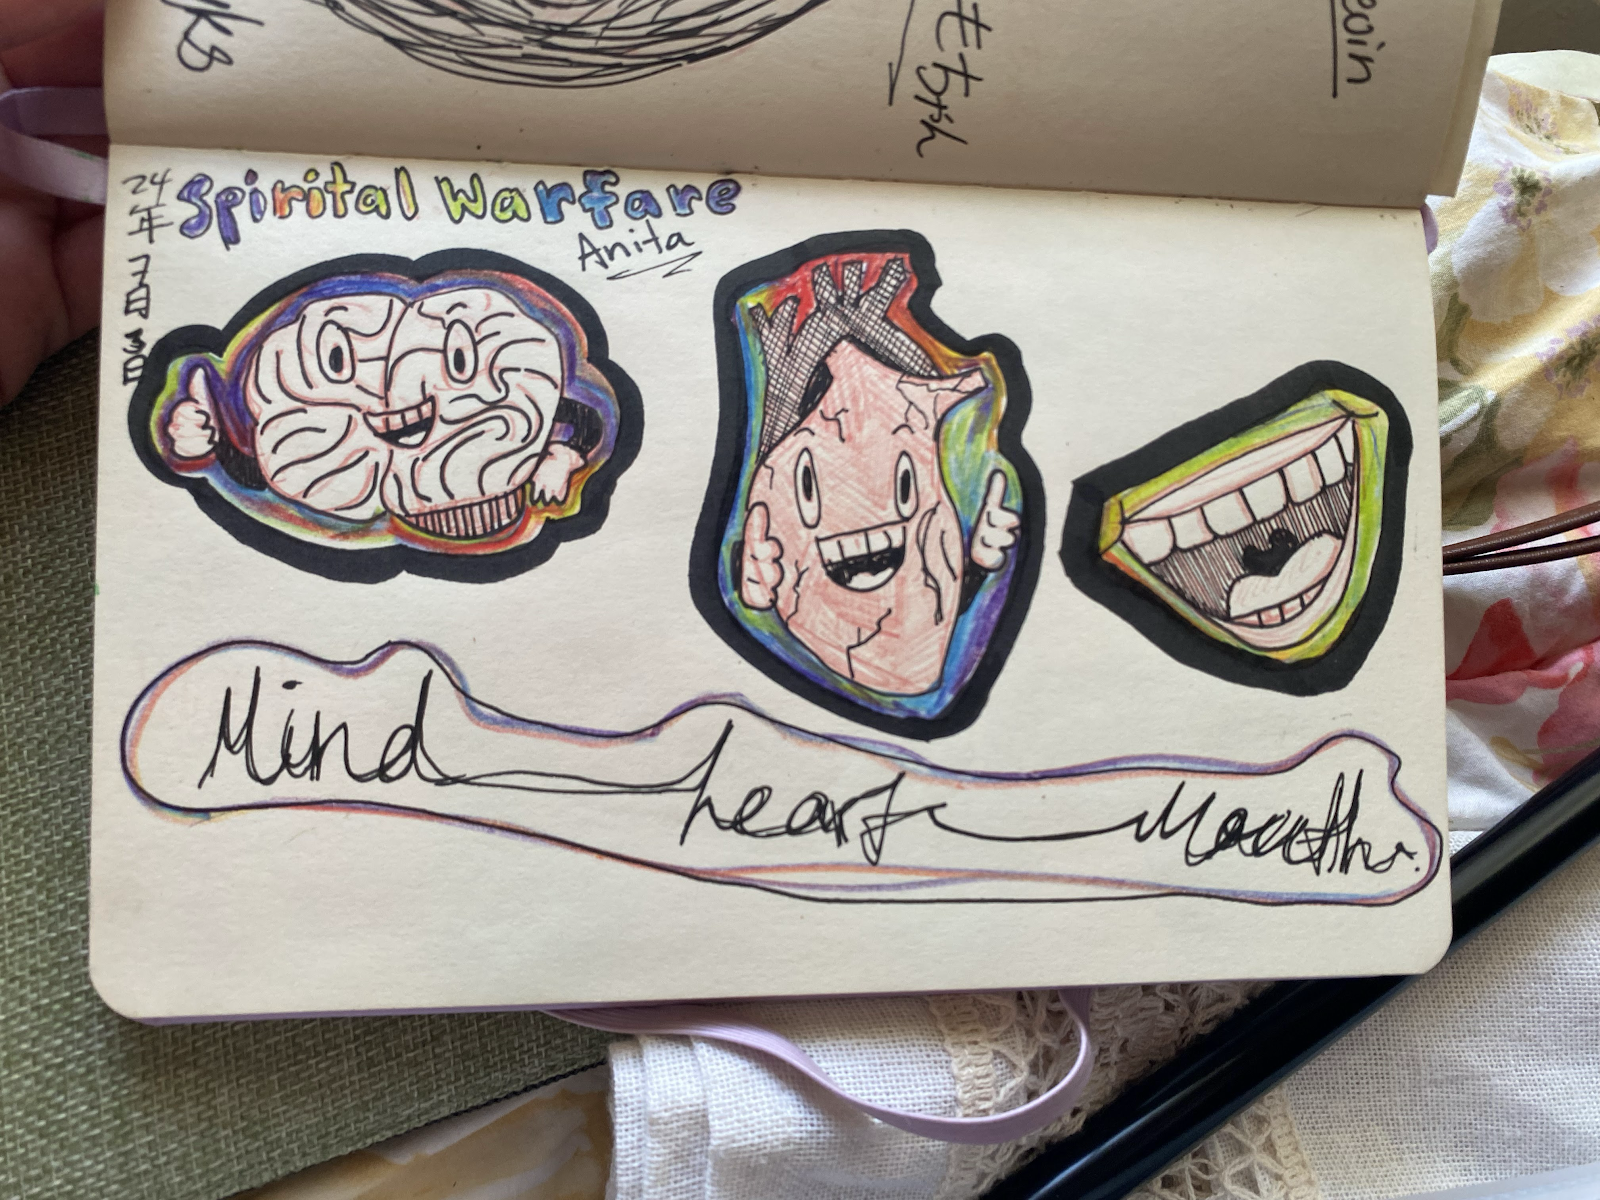 24年7月3日
Spirital Warfare
Anita
Mind heart Mouth.